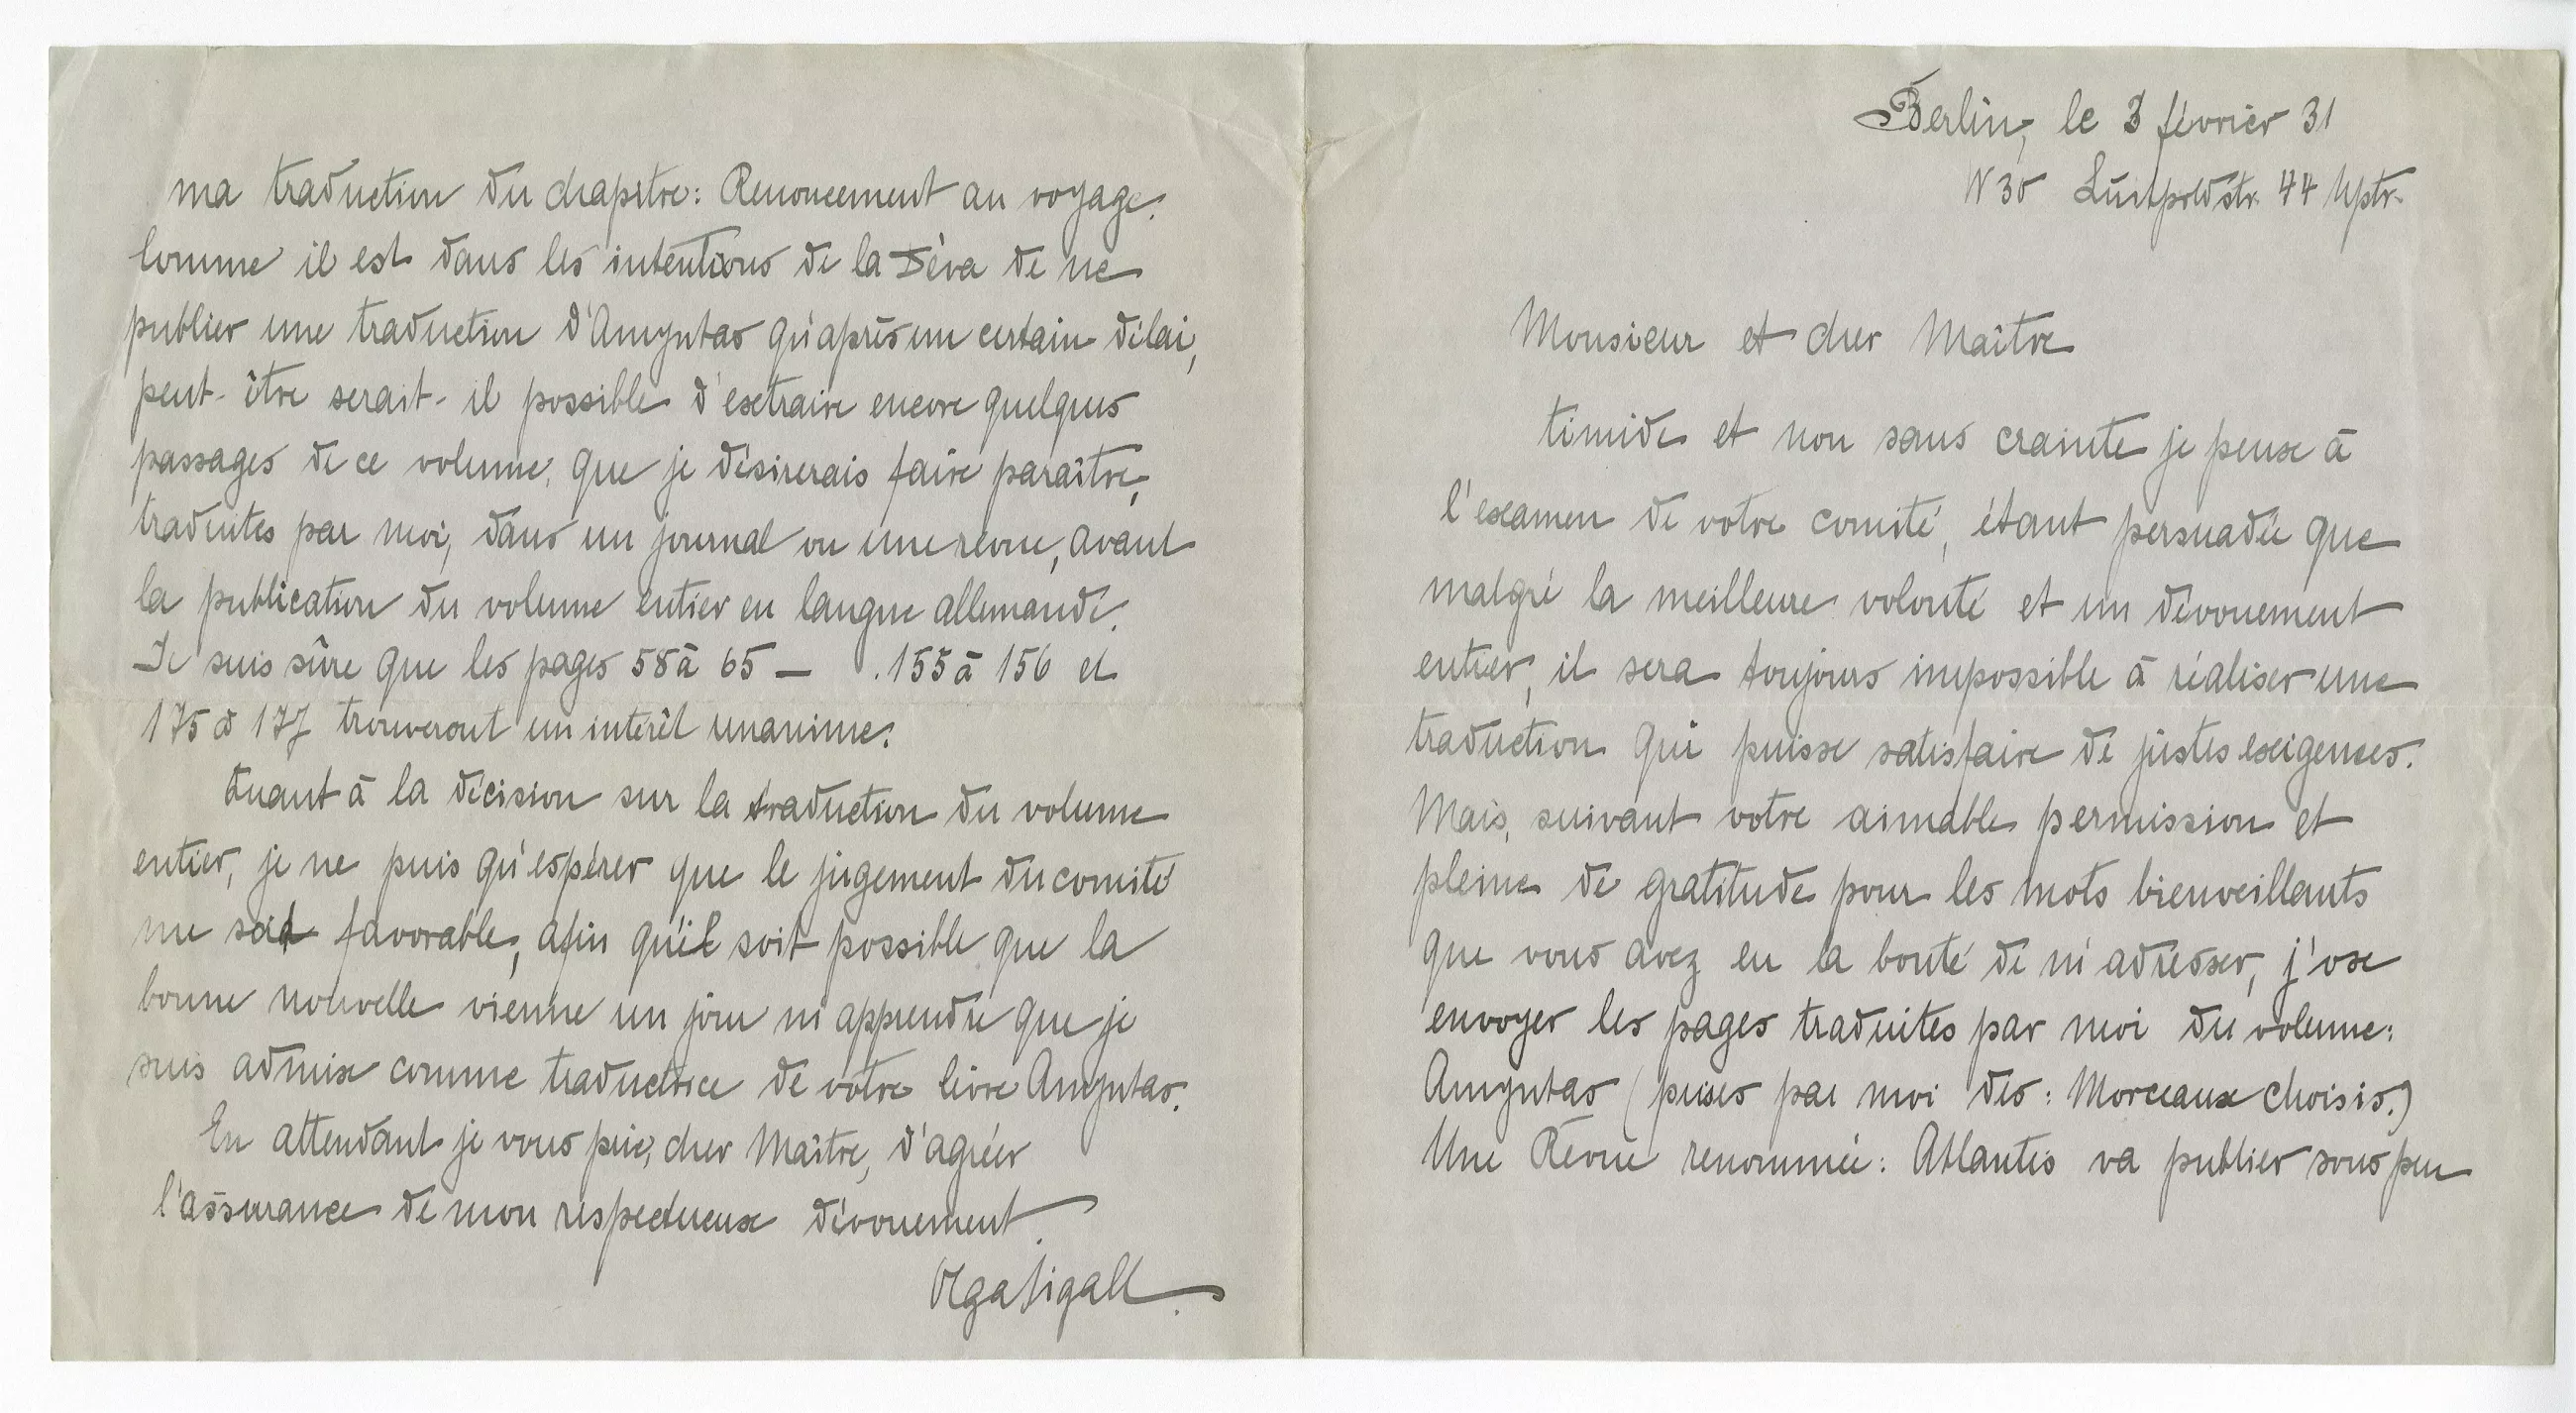 Berlin, le 3 février 31
W 30 Luitpoldstr. 44 Hptr.
Monsieur et cher Maître
timide et non sans crainte je pense à
l'examen de votre comité, étant persuadée que
malgré la meilleure volonté et un dévouement
entier, il sera toujours impossible à réaliser une
traduction qui puisse satisfaire de justes exigences.
Mais, suivant votre aimable permission et
pleine de gratitude pour les mots bienveillants
que vous avez eu la bonté de m'adresser, j'ose
envoyer les pages traduites par moi du volume:
Amyntas (prises par moi des: Morceaux choisis.)
Une Révue renommée: Atlantis va publier sous peu
ma traduction du chapitre: Renoncement au voyage.
Comme il est dans les intentions de la Déva de ne
publier une traduction d'Amyntas qu'après un certain délai,
peut-être serait-il possible d'extraire encore quelques
passages de ce volume, que je désirerais faire paraître,
traduites par moi, dans un journal ou une révue, avant
la publication du volume entier en langue allemande.
Je suis sûre que les pages 58 à 65 — . 155 à 156 et
175 à 177 trouveront un intérêt unanime.
Quant à la décision sur la traduction du volume
entier, je ne puis qu'espérer que le jugement du comité
me soit favorable, afin qu'il soit possible que la
bonne nouvelle vienne un jour m'apprendre que je
suis admise comme traductrice de votre livre Amyntas.
En attendant je vous prie, cher Maître, d'agréer
l'assurance de mon respectueux dévouement.
Olga Sigall